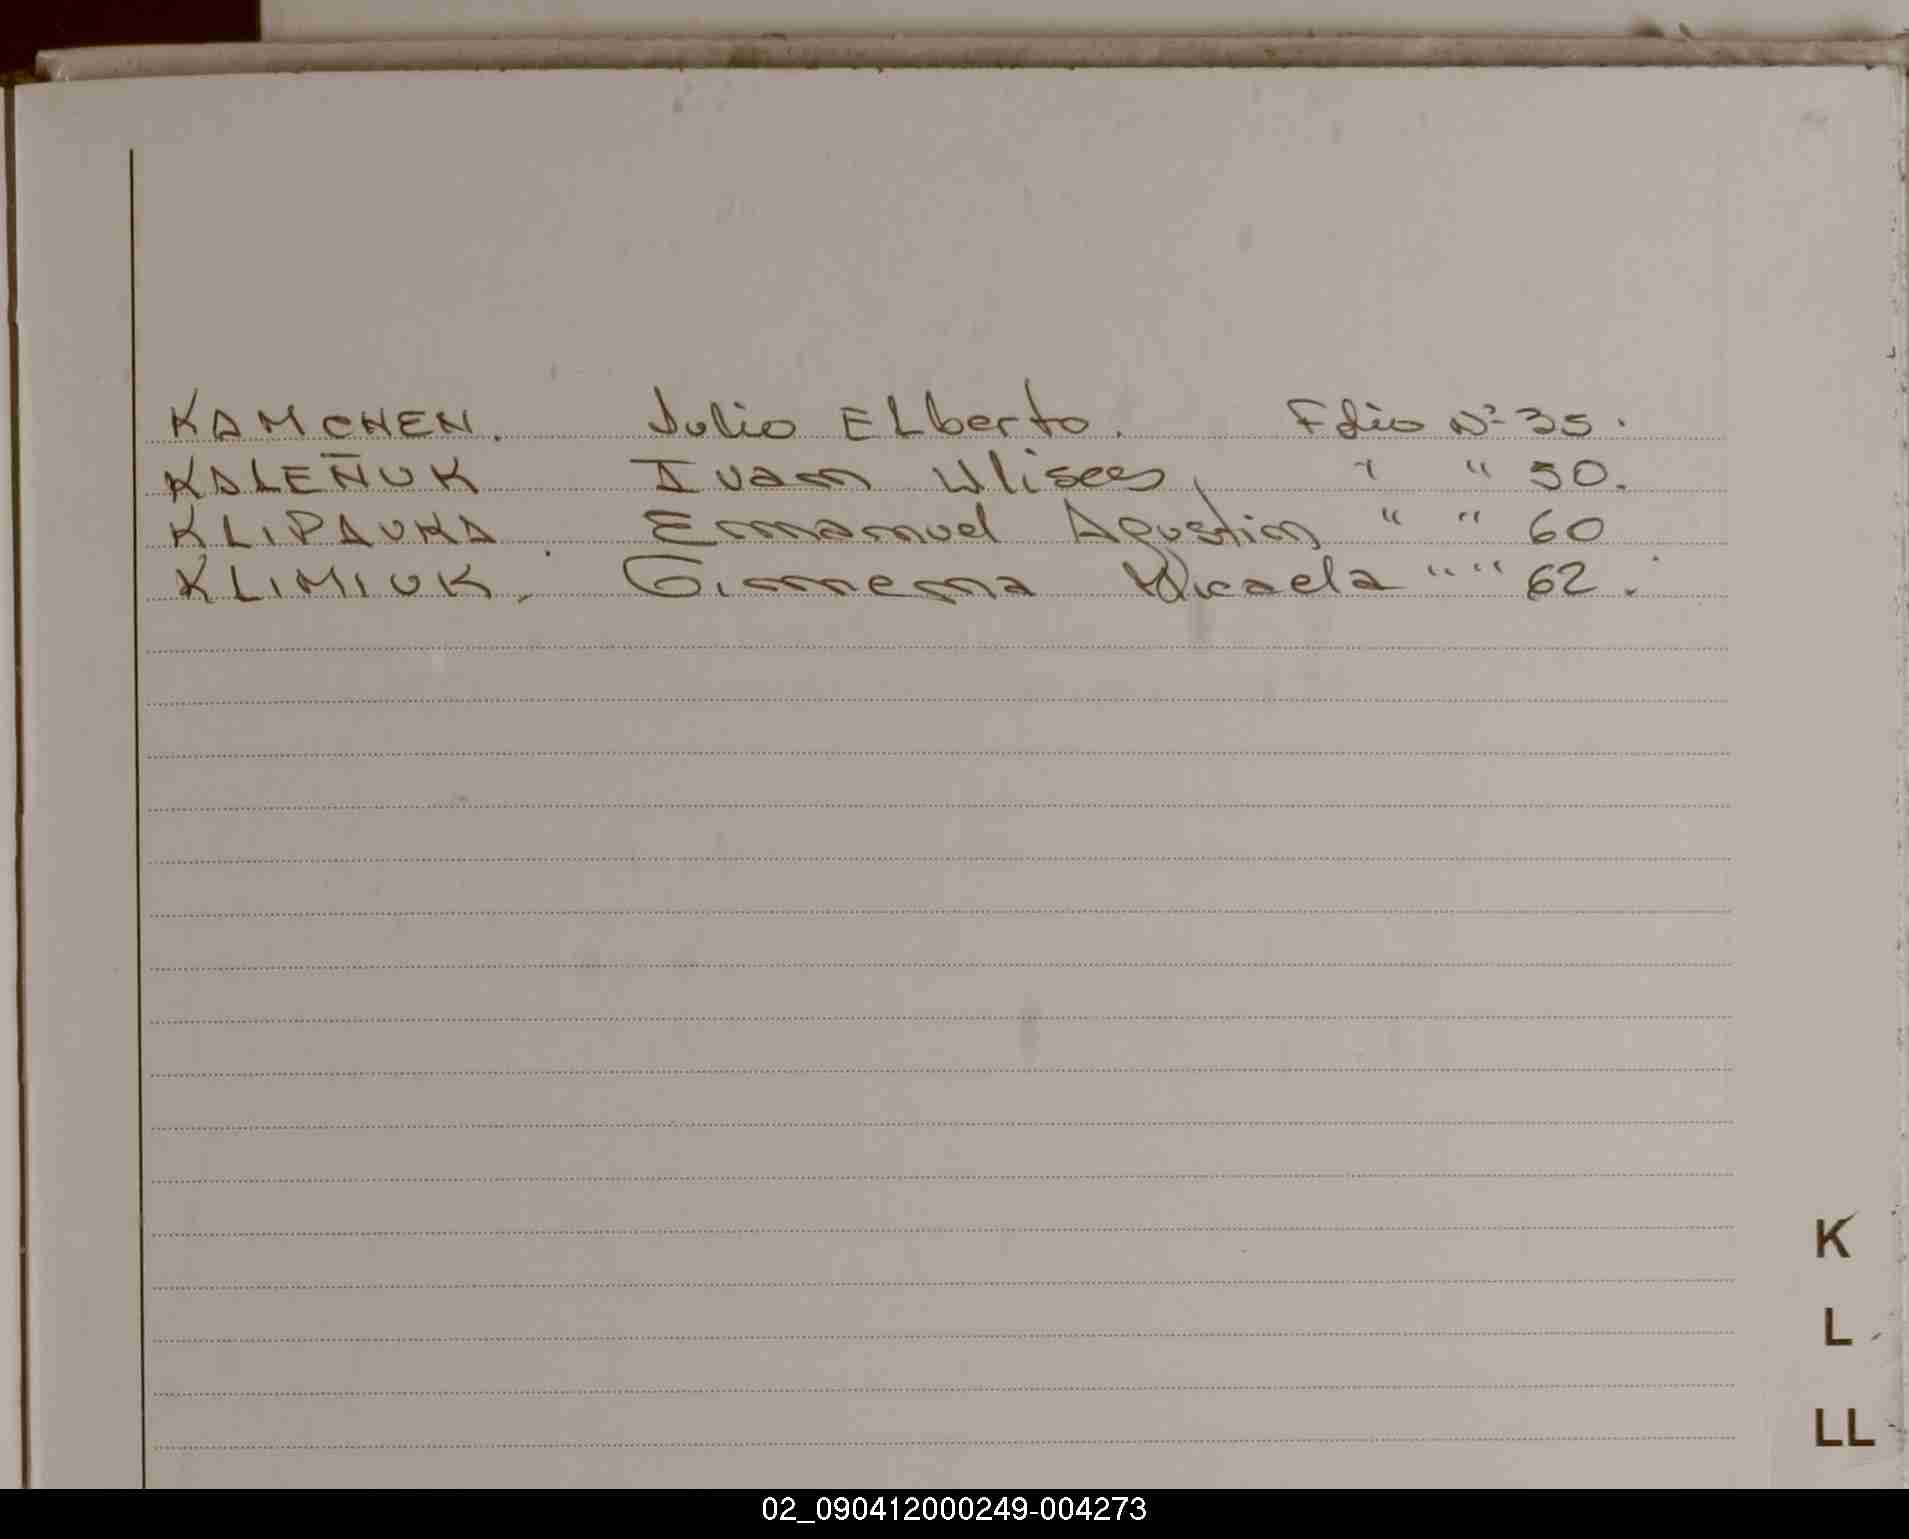 KAMCHEN. Julio ELberto. Folio Nº 35.
KALEÑUK Ivan Ulises, " " 50.
KLIPAUKA. Emmanuel Agustin " " 60
KLIMIUK. Gimena Micaela " " 62.
K
L
LL
02_090412000249-004273